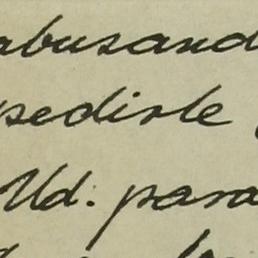 abusand
pedirle
Ud. para